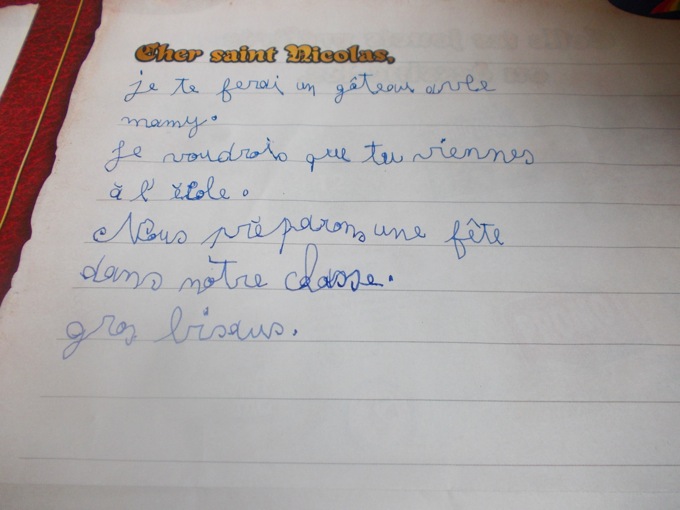 Cher saint Nicolas,
je te ferai un gâteau avec
mamy.
Je voudrais que tu viennes
à l'école.
Nous préparons une fête
dans nôtre classe.
gros bisous.